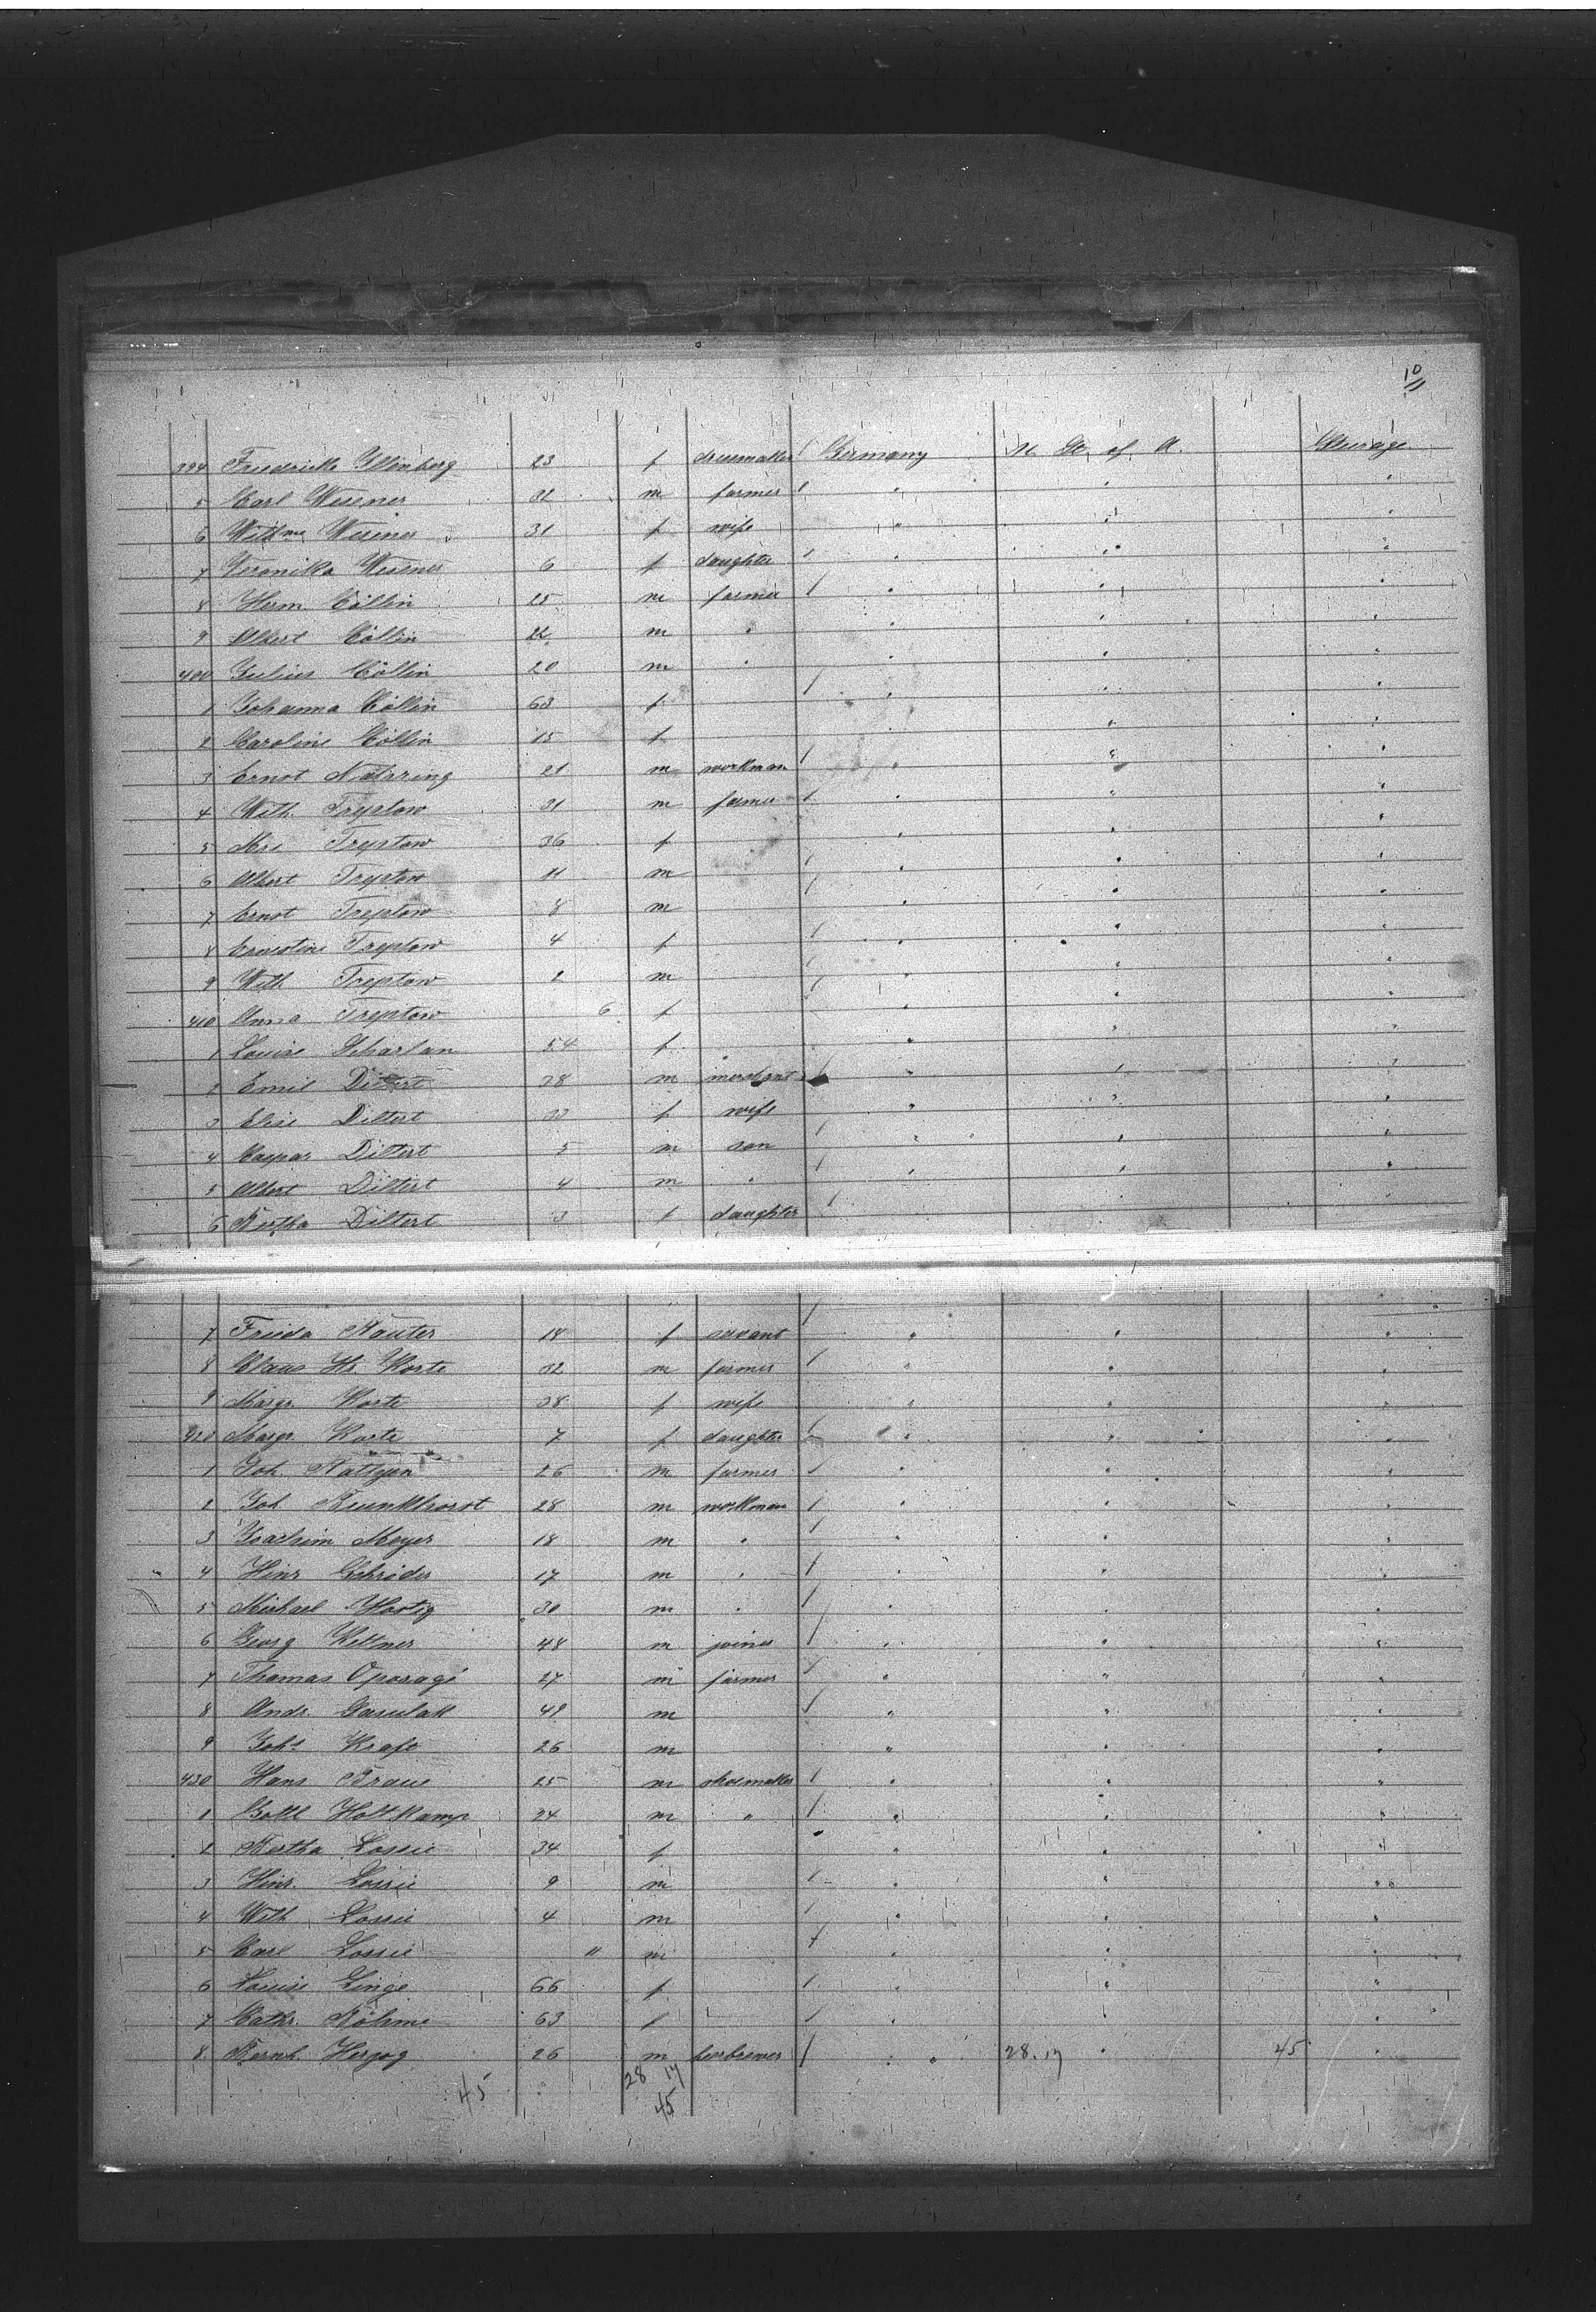 10
394 Friedricke Illenberg 23 f dressmaker Germany U. St. of A. Steerage
5 Carl Wesener 32 m farmer " " "
6 Wilhme Wesener 31 f wife " " "
7 Veronika Wesener 6 f daughter " " "
8 Herm. Cöllin 25 m farmer " " "
9 Albert Cöllin 22 m " " " "
400 Julius Cöllin 20 m " " " "
1 Johanna Cöllin 63 f " " "
2 Caroline Cöllin 15 f " " "
3 Ernst 21 m workman " " "
4 Wilh. Treptow 31 m farmer " " "
5 Mrs Treptow 36 f " " "
6 Albert Treptow 11 m " " "
7 Ernst Treptow 8 m " " "
8 Ernestine Treptow 4 f " " "
9 Wilh Treptow 2 m " " "
410 Anna Treptow 6 f " " "
1 Louise Scharlan 54 f " " "
2 Emil Diltert 38 m merchant " " "
3 Elise Diltert 33 f wife " " "
4 Caspar Diltert 5 m son " " "
5 Albert Diltert 4 m " " " "
6 Bertha Diltert 3 f daughter " " "
7 Frieda Käuter 18 f servant " " "
8 Claus Hr. Korte 32 m farmer " " "
9 Margr. Korte 38 f wife " " "
420 Margr. Korte 7 f daughter " " "
1 Joh. 26 m farmer " " "
2 Joh Brunkhorst 28 m workman " " "
3 Joachim Meyer 18 m " " " "
4 Hinr Schröder 17 m " " " "
5 Michael Hartig 30 m " " " "
6 Georg Kettner 48 m joiner " " "
7 Thomas 27 m farmer " " "
8 Andr. 49 m " " "
9 Johs Kraft 26 m " " "
430 Hans Braue 25 m shoemaker " " "
1 Gottl Holtkamp 24 m " " " "
2 Bertha Lossie 34 f " " "
3 Hinr. Lossie 9 m " " "
4 Wilh Lossie 4 m " " "
5 Carl Lossie 11 m " " "
6 Louise Linge 66 f " " "
7 Cathr. Böhme 63 f " " "
8 Bernh. Herzog 26 m beerbrewer " 28.17 " 45 "
45 28 17
45